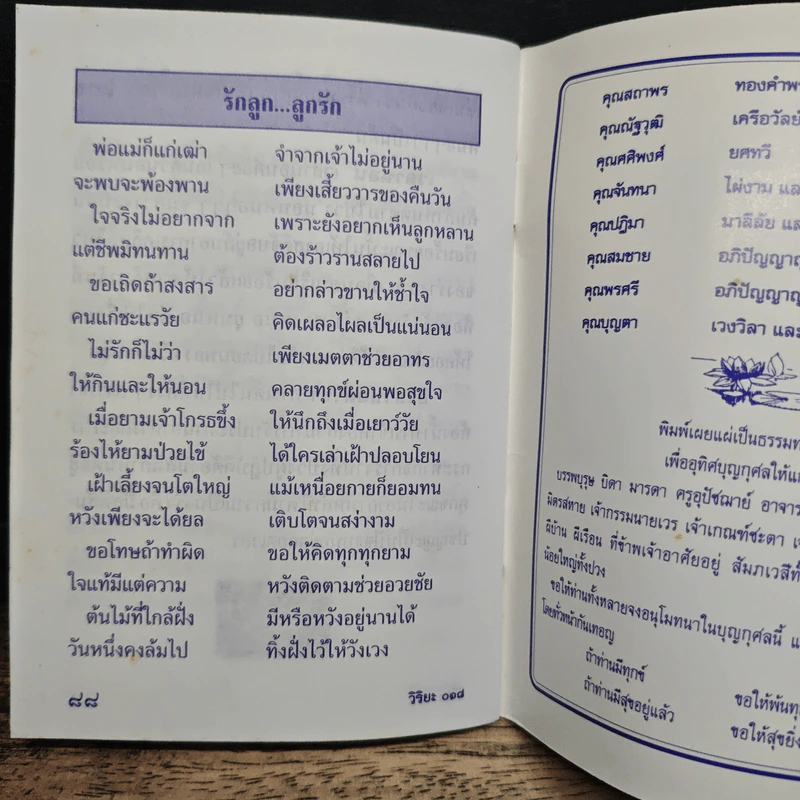 รักลูก...ลูกรัก
พ่อแม่ก็แก่เฒ่า จำจากเจ้าไม่อยู่นาน
จะพบจะพ้องพาน เพียงเสี้ยววารของคืนวัน
ใจจริงไม่อยากจาก เพราะยังอยากเห็นลูกหลาน
แต่ชีพมิทนทาน ต้องร้าวรานสลายไป
ขอเถิดถ้าสงสาร อย่ากล่าวขานให้ช้ำใจ
คนแก่ชะแรวัย คิดเผลอไผลเป็นแน่นอน
ไม่รักก็ไม่ว่า เพียงเมตตาช่วยอาทร
ให้กินและให้นอน คลายทุกข์ผ่อนพอสุขใจ
เมื่อยามเจ้าโกรธขึ้ง ให้นึกถึงเมื่อเยาว์วัย
ร้องไห้ยามป่วยไข้ ได้ใครเล่าเฝ้าปลอบโยน
เฝ้าเลี้ยงจนโตใหญ่ แม้เหนื่อยกายก็ยอมทน
หวังเพียงจะได้ยล เติบโตจนสง่างาม
ขอโทษถ้าทำผิด ขอให้คิดทุกทุกยาม
ใจแท้มีแต่ความ หวังติดตามช่วยอวยชัย
ต้นไม้ที่ใกล้ฝั่ง มีหรือหวังอยู่นานได้
วันหนึ่งคงล้มไป ทิ้งฝั่งไว้ให้วังเวง
๘๘ วิริยะ ๐๑๘
คุณสถาพร ทองคำพ
คุณณัฐวุฒิ เครือวัลย์
คุณศศิพงศ์ ยศทวี
คุณจันทนา ไผ่งาม แล
คุณปฏิมา มาลีลัย แล
คุณสมชาย อภิปัญญา
คุณพรศรี อภิปัญญา
คุณบุญตา เวงวิลา และ
พิมพ์เผยแผ่เป็นธรรมท
เพื่ออุทิศบุญกุศลให้แก่
บรรพบุรุษ บิดา มารดา ครูอุปัชฌาย์ อาจาร
มิตรสหาย เจ้ากรรมนายเวร เจ้าเกณฑ์ชะตา เ
ผีบ้าน ผีเรือน ที่ข้าพเจ้าอาศัยอยู่ สัมภเวสีทั้
น้อยใหญ่ทั้งปวง
ขอให้ท่านทั้งหลายจงอนุโมทนาในบุญกุศลนี้ แ
โดยทั่วหน้ากันเทอญ
ถ้าท่านมีทุกข์ ขอให้พ้นทุ
ถ้าท่านมีสุขอยู่แล้ว ขอให้สุขยิ่ง